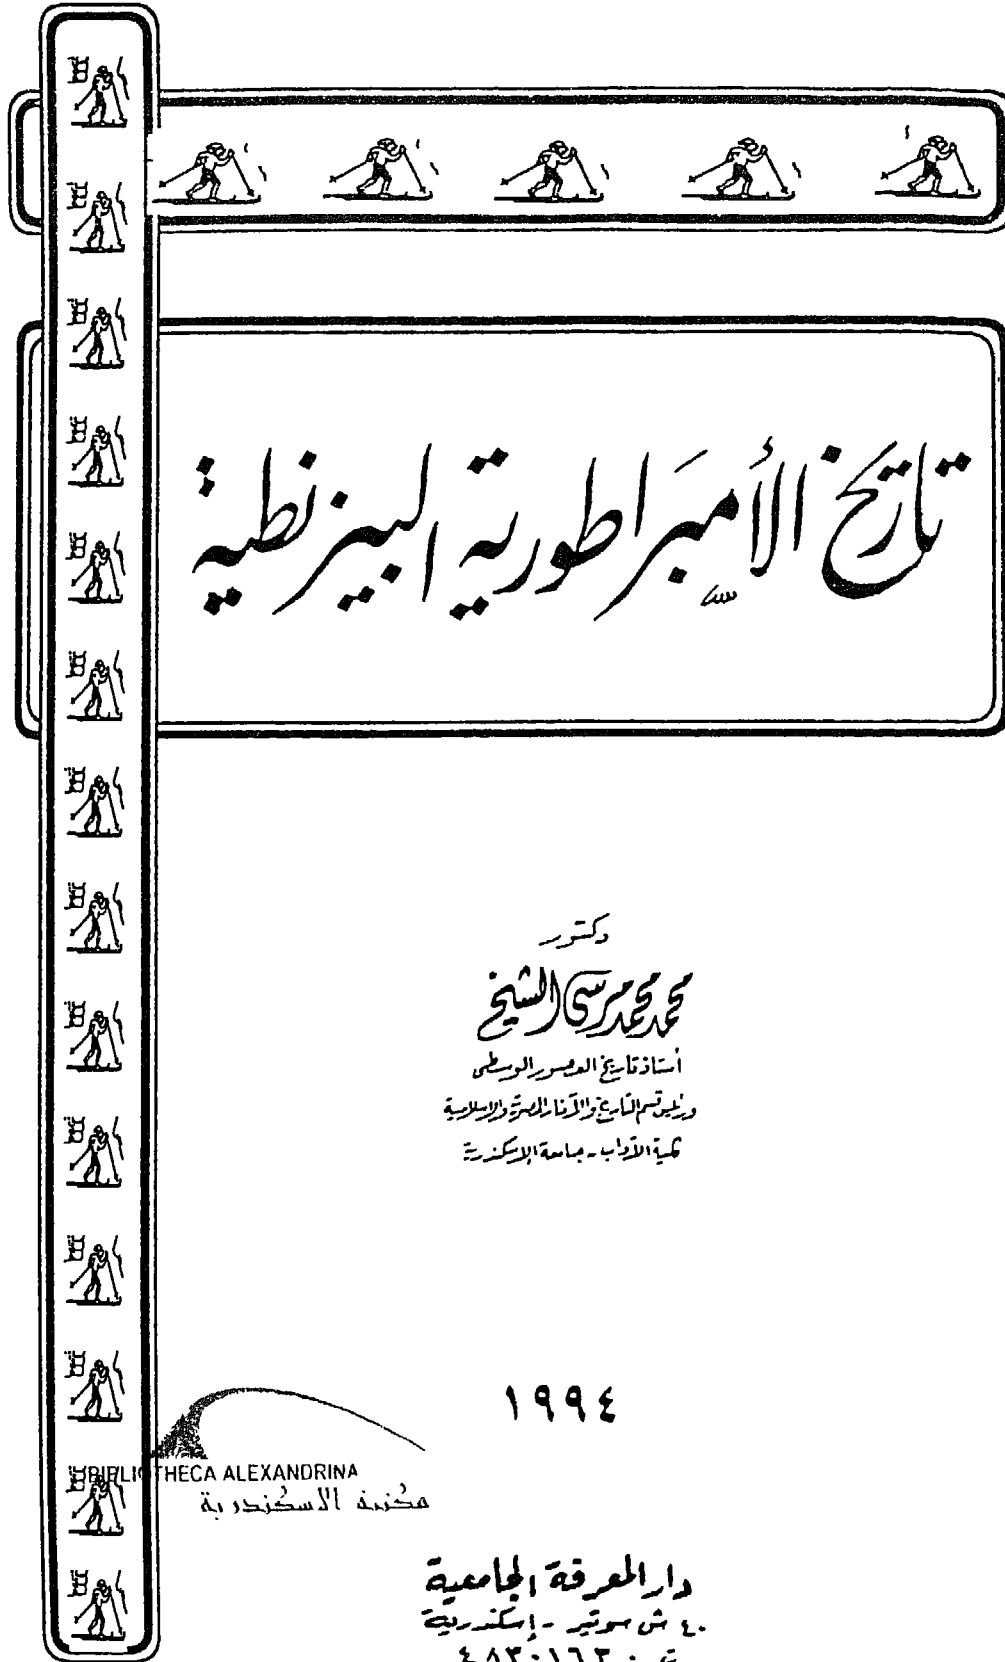 تاريخ الأمبراطورية البيزنطية
دكتور
محمد محمد مرسى الشيخ
أستاذ تاريخ العصور الوسطى
ورئيس قسم التاريخ والآثار المصرية والإسلامية
كلية الآداب - جامعة الإسكندرية
١٩٩٤
BIBLIOTHECA ALEXANDRINA
مكتبة الاسكندرية
دار المعرفة الجامعية
٤٠ ش سوتير - إسكندرية
ت : ٤٨٣٠١٦٣